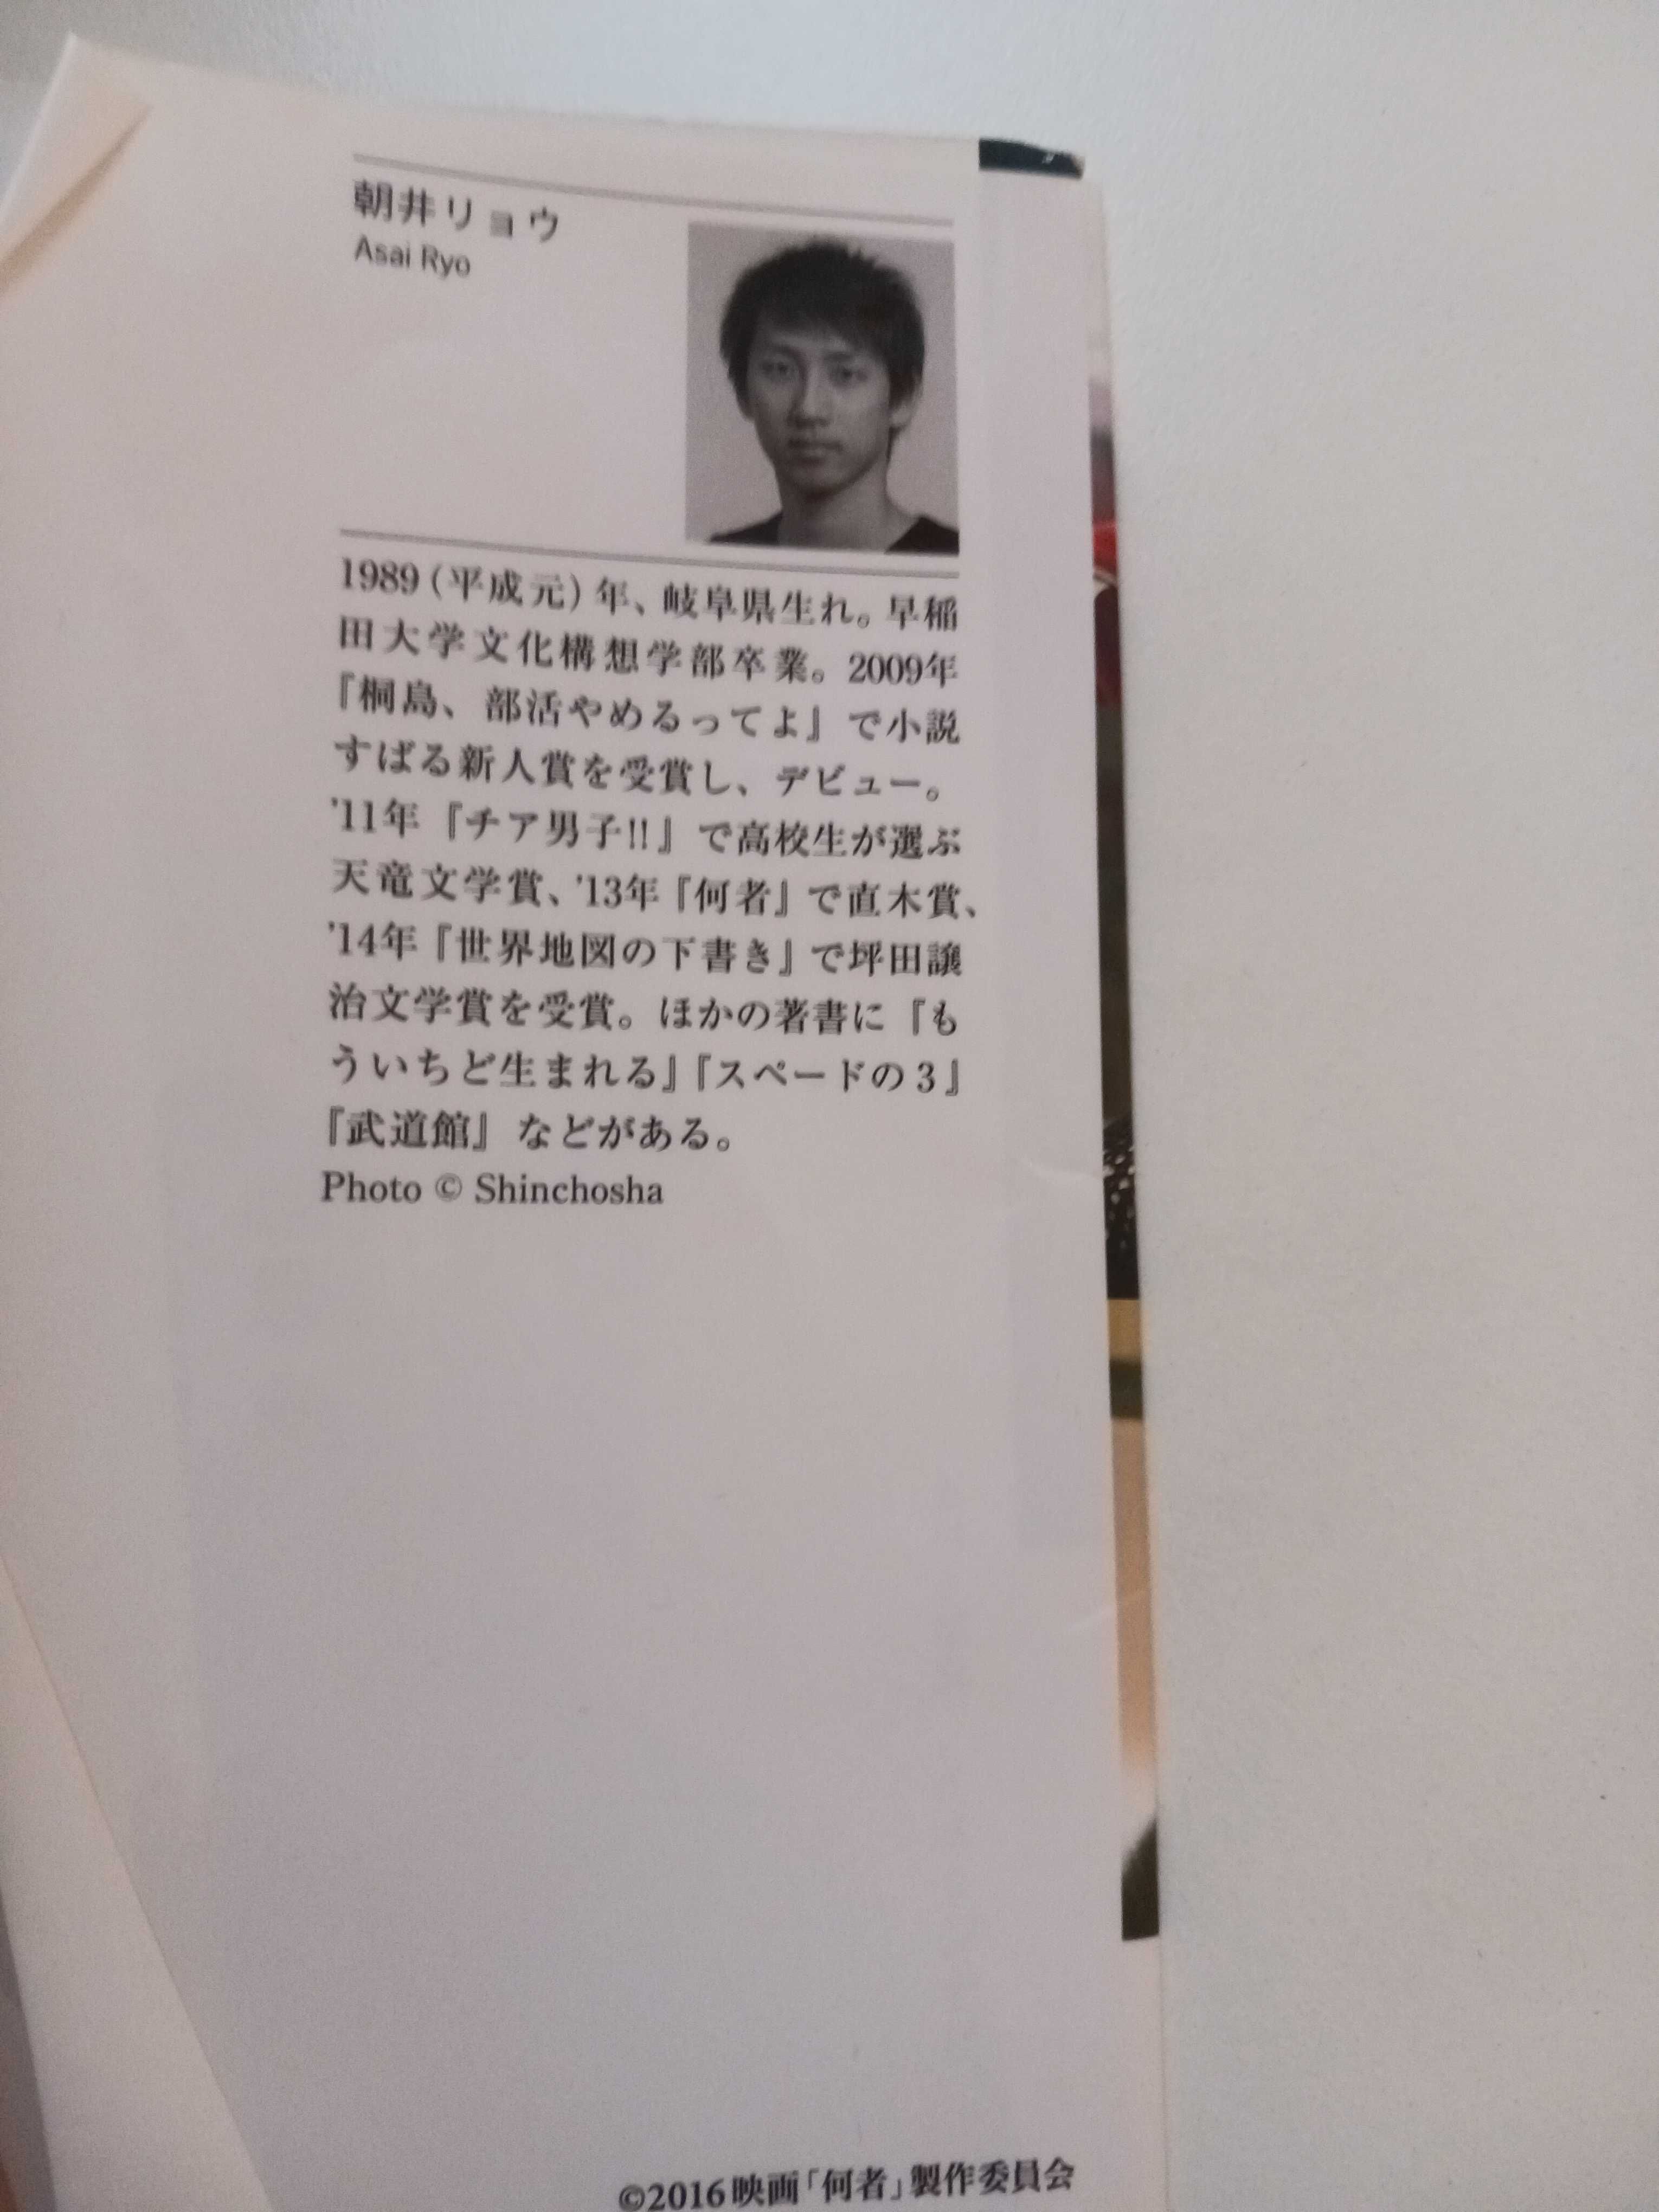 朝井リョウ
Asai Ryo
1989（平成元）年、岐阜県生れ。早稲
田大学文化構想学部卒業。2009年
『桐島、部活やめるってよ』で小説
すばる新人賞を受賞し、デビュー。
'11年『チア男子!!』で高校生が選ぶ
天竜文学賞、'13年『何者』で直木賞、
'14年『世界地図の下書き』で坪田譲
治文学賞を受賞。ほかの著書に『も
ういちど生まれる』『スペードの3』
『武道館』などがある。
Photo © Shinchosha
©2016映画「何者」製作委員会